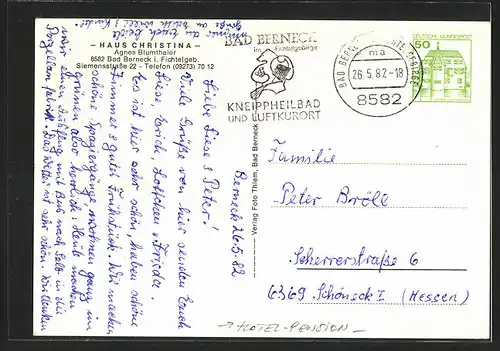 — HAUS CHRISTINA —
Agnes Blumthaler
8582 Bad Berneck i. Fichtelgeb.
Siemensstraße 22 - Telefon (09273) 70 12
BAD BERNECK
im Fichtelgebirge
KNEIPPHEILBAD
UND LUFTKURORT
26.5.82-18
8582
DEUTSCHE BUNDESPOST
50
Verlag Foto Thiem, Bad Berneck
Berneck 26.5.82
Liebe Liese & Peter!
Viele Grüße von hier senden Euch
Liese, Erich, Lottchen & Frieda.
Es ist hier sehr schön, haben schöne
Zimmer & gutes Frühstück. Wir machen
schöne Spaziergänge, wohnen ganz im
Grünen also herrlich. Heute machen
wir einen Ausflug mit Bus nach Selb in die
Porzellan fabrik. Das Wetter ist sehr schön. Wir denken
Familie
Peter Bröll
Scherrerstraße 6
6369 Schöneck I (Hessen)
→ HOTEL-PENSION —